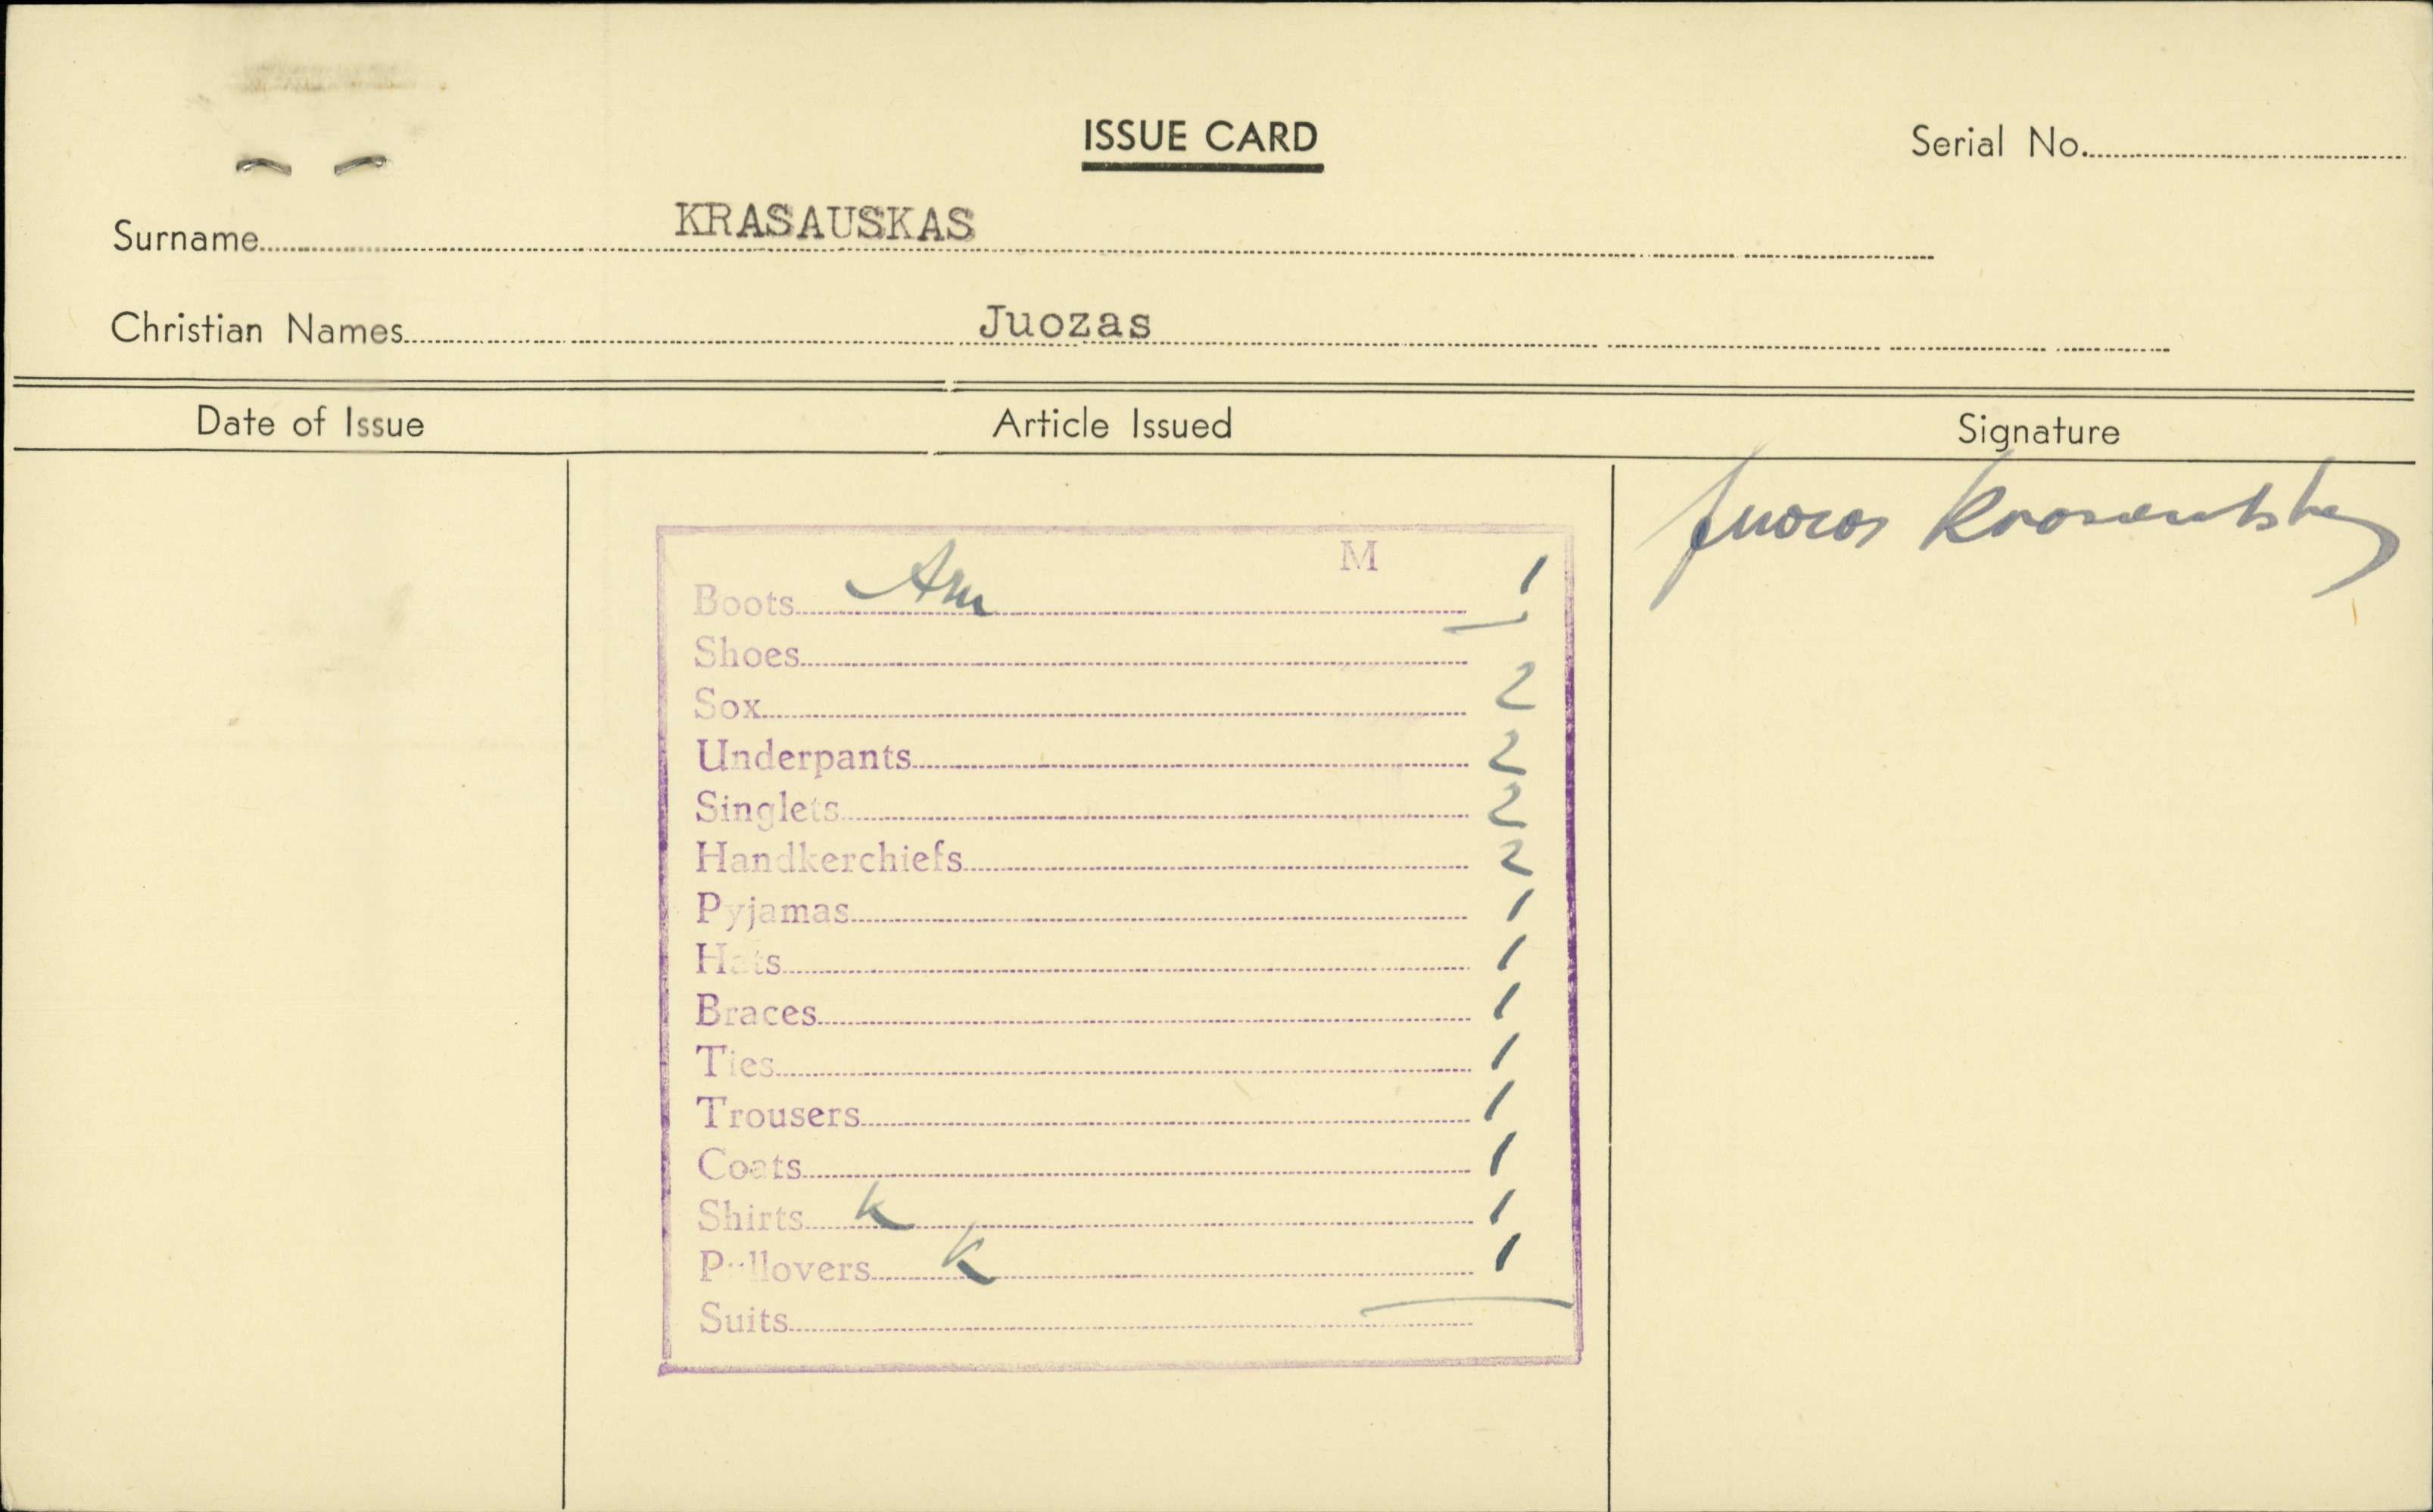 ISSUE CARD
Serial No.
Surname KRASAUSKAS
Christian Names Juozas
Date of Issue Article Issued Signature
M
Boots Am 1
Shoes
Sox 2
Underpants 2
Singlets 2
Handkerchiefs 2
Pyjamas 1
Hats 1
Braces 1
Ties 1
Trousers 1
Coats 1
Shirts K 1
Pullovers K 1
Suits